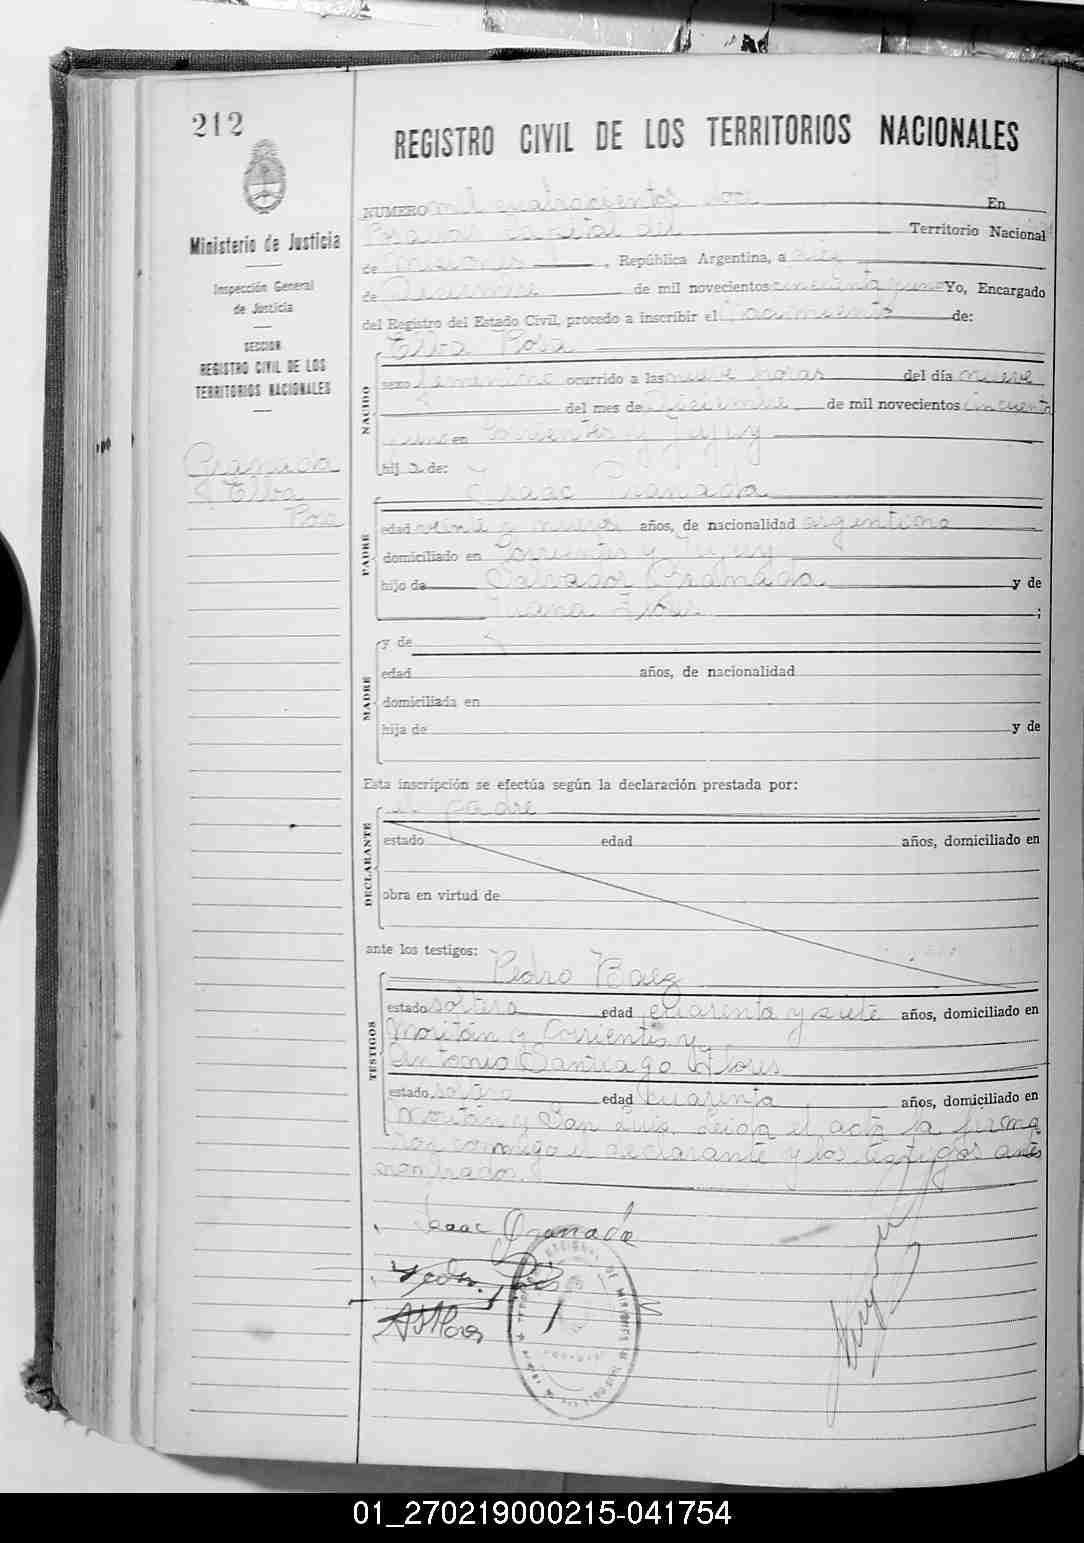 212
REGISTRO CIVIL DE LOS TERRITORIOS NACIONALES
Ministerio de Justicia
Inspección General
de Justicia
SECCION
REGISTRO CIVIL DE LOS
TERRITORIOS NACIONALES
Granada
Elba
Rosa
NUMERO mil cuatrocientos doce En
Posadas capital del Territorio Nacional
de Misiones, República Argentina, a diez
de Diciembre de mil novecientos cincuenta y uno Yo, Encargado
del Registro del Estado Civil, procedo a inscribir el Nacimiento de:
NACIDO
Elba Rosa
sexo femenino ocurrido a las nueve horas del día nueve
del mes de Diciembre de mil novecientos cincuenta
y uno en Corrientes y Jujuy
hija de:
PADRE
Isaac Granada
edad veinte y nueve años, de nacionalidad argentina
domiciliado en Corrientes y Jujuy
hijo de Salvador Granada y de
Juana ;
MADRE
y de
edad años, de nacionalidad
domiciliada en
hija de y de
Esta inscripción se efectúa según la declaración prestada por:
DECLARANTE
el padre
estado edad años, domiciliado en
obra en virtud de
ante los testigos:
TESTIGOS
Pedro Baez
estado soltero edad cuarenta y siete años, domiciliado en
y Corrientes y
Antonio Santiago Flores
estado soltero edad cuarenta años, domiciliado en
y San Luis. Leida el acta la firma
ron conmigo el declarante y los testigos antes
nombrados.
Isaac Granada
Pedro
A S Flores
01_270219000215-041754